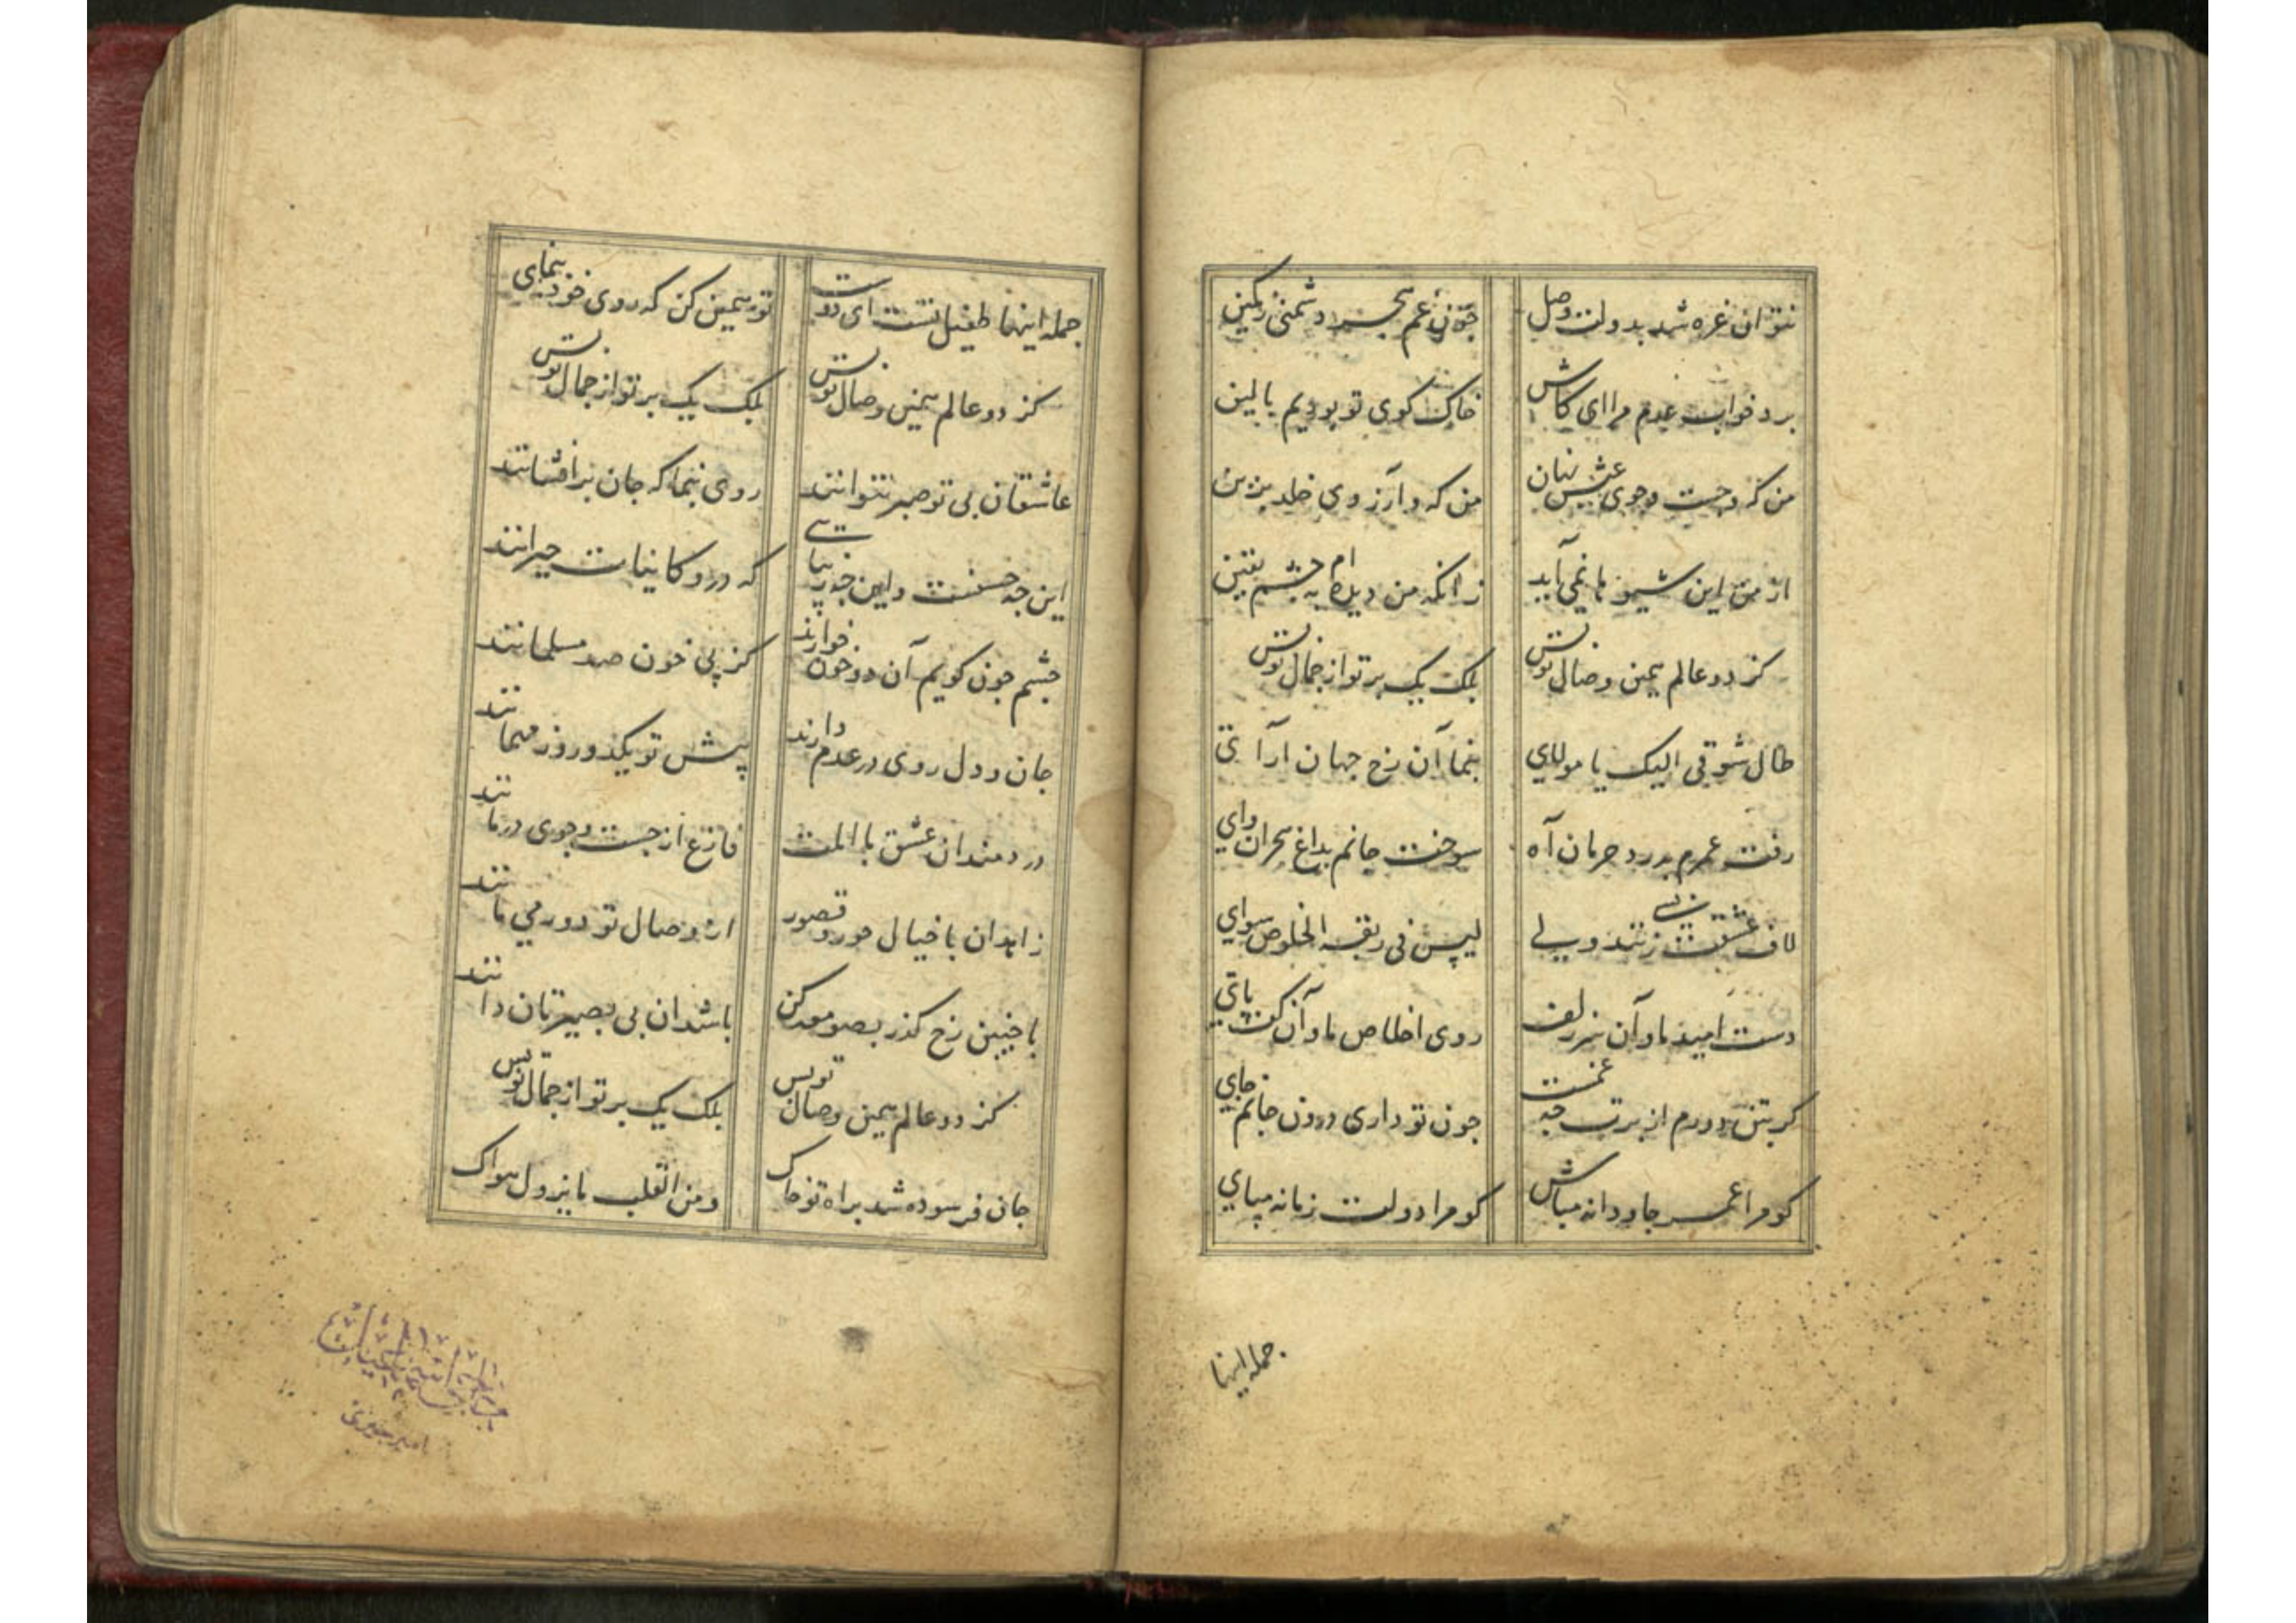 نتوان غره شد بدولت وصل چون غم هجر دشمنی زکمین
برد خواب عدم مرا ای کاش خاک کوی تو بودیم بالین
من که و جست وجوی عیش نهان من که و آرزوی خلد برین
از من این شیوها نمی آید زانکه من دیده ام به چشم یقین
کز دو عالم همین وصال تو بس بلک یک پرتو از جمال تو بس
طال شوقی الیک یا مولای بنما آن رخ جهان آرای
رفت عمرم بدرد حرمان آه سوخت جانم بداغ هجران وای
لاف عشقت زنند ولی لیس فی ربقه الخلوص سوای
دست امید ما و آن سر زلف روی اخلاص ما و آن کف پای
گر بتن دورم از برت چه غمست چون تو داری درون جانم جای
گو مرا عمر جاودانه مباش گو مرا دولت زمانه مپای
جمله اینها
جمله اینها طفیل تست ای دوست تو همین کن که روی خود بنمای
کز دو عالم همین وصال تو بس بلک یک پرتو از جمال تو بس
عاشقان بی تو صبر نتوانند روی بنما که جان برافشانند
این چه حسنست واین چه زیبایست که درو کاینات حیرانند
چشم چون گویم آن دو خون خوارند کز پی خون صد مسلمانند
جان و دل روی در عدم دارند پیش تو یکدو روز مهمانند
دردمندان عشق با المت فارغ از جست وجوی درمانند
زاهدان با خیال حور و قصور از وصال تو دور می مانند
با چنین رخ گذر بصومعه کن باشد آن بی بصیرتان دانند
کز دو عالم همین وصال تو بس بلک یک پرتو از جمال تو بس
جان فرسوده شد براه تو خاک و من القلب ما یزول هواک